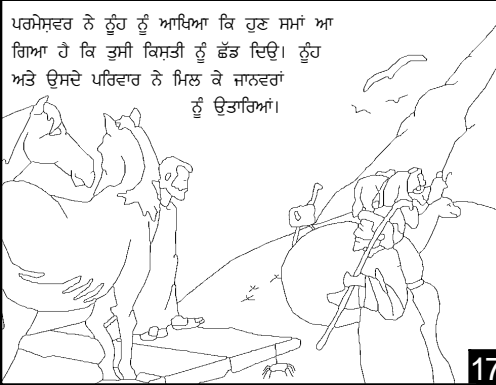 ਪਰਮੇਸ਼ਵਰ ਨੇ ਨੂੰਹ ਨੂੰ ਆਖਿਆ ਕਿ ਹੁਣ ਸਮਾਂ ਆ
ਗਿਆ ਹੈ ਕਿ ਤੁਸੀ ਕਿਸ਼ਤੀ ਨੂੰ ਛੱਡ ਦਿਓ। ਨੂੰਹ
ਅਤੇ ਉਸਦੇ ਪਰਿਵਾਰ ਨੇ ਮਿਲ ਕੇ ਜਾਨਵਰਾਂ
ਨੂੰ ਉਤਾਰਿਆਂ।
17